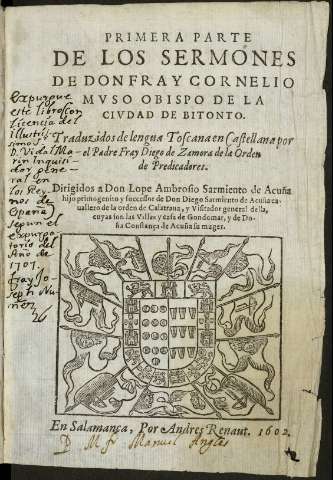 PRIMERA PARTE
DE LOS SERMONES
DE DON FRAY CORNELIO
MVSO OBISPO DE LA
CIVDAD DE BITONTO.
Traduzidos de lengua Toscana en Castellana por
el Padre Fray Diego de Zamora de la Orden
de Predicadores.
Dirigidos a Don Lope Ambrosio Sarmiento de Acuña
hijo primogenito y successor de Don Diego Sarmiento de Acuña ca-
uallero de la orden de Calatraua, y Visitador general della,
cuyas son las Villas y casa de Gondomar, y de Do-
ña Constança de Acuña su muger.
Expurgue
este libro con
Licencia del
Illustris
simo S.
D. Vidal Ma
rin Inquisi
dor gene
ral en
los Rey
nos de
España
segun el
expurga
torio del
Año de
1707.
fray Jo
seph Nu
ñez
En Salamança, Por Andres Renaut. 1602.
D. M. fr. Manuel Angles